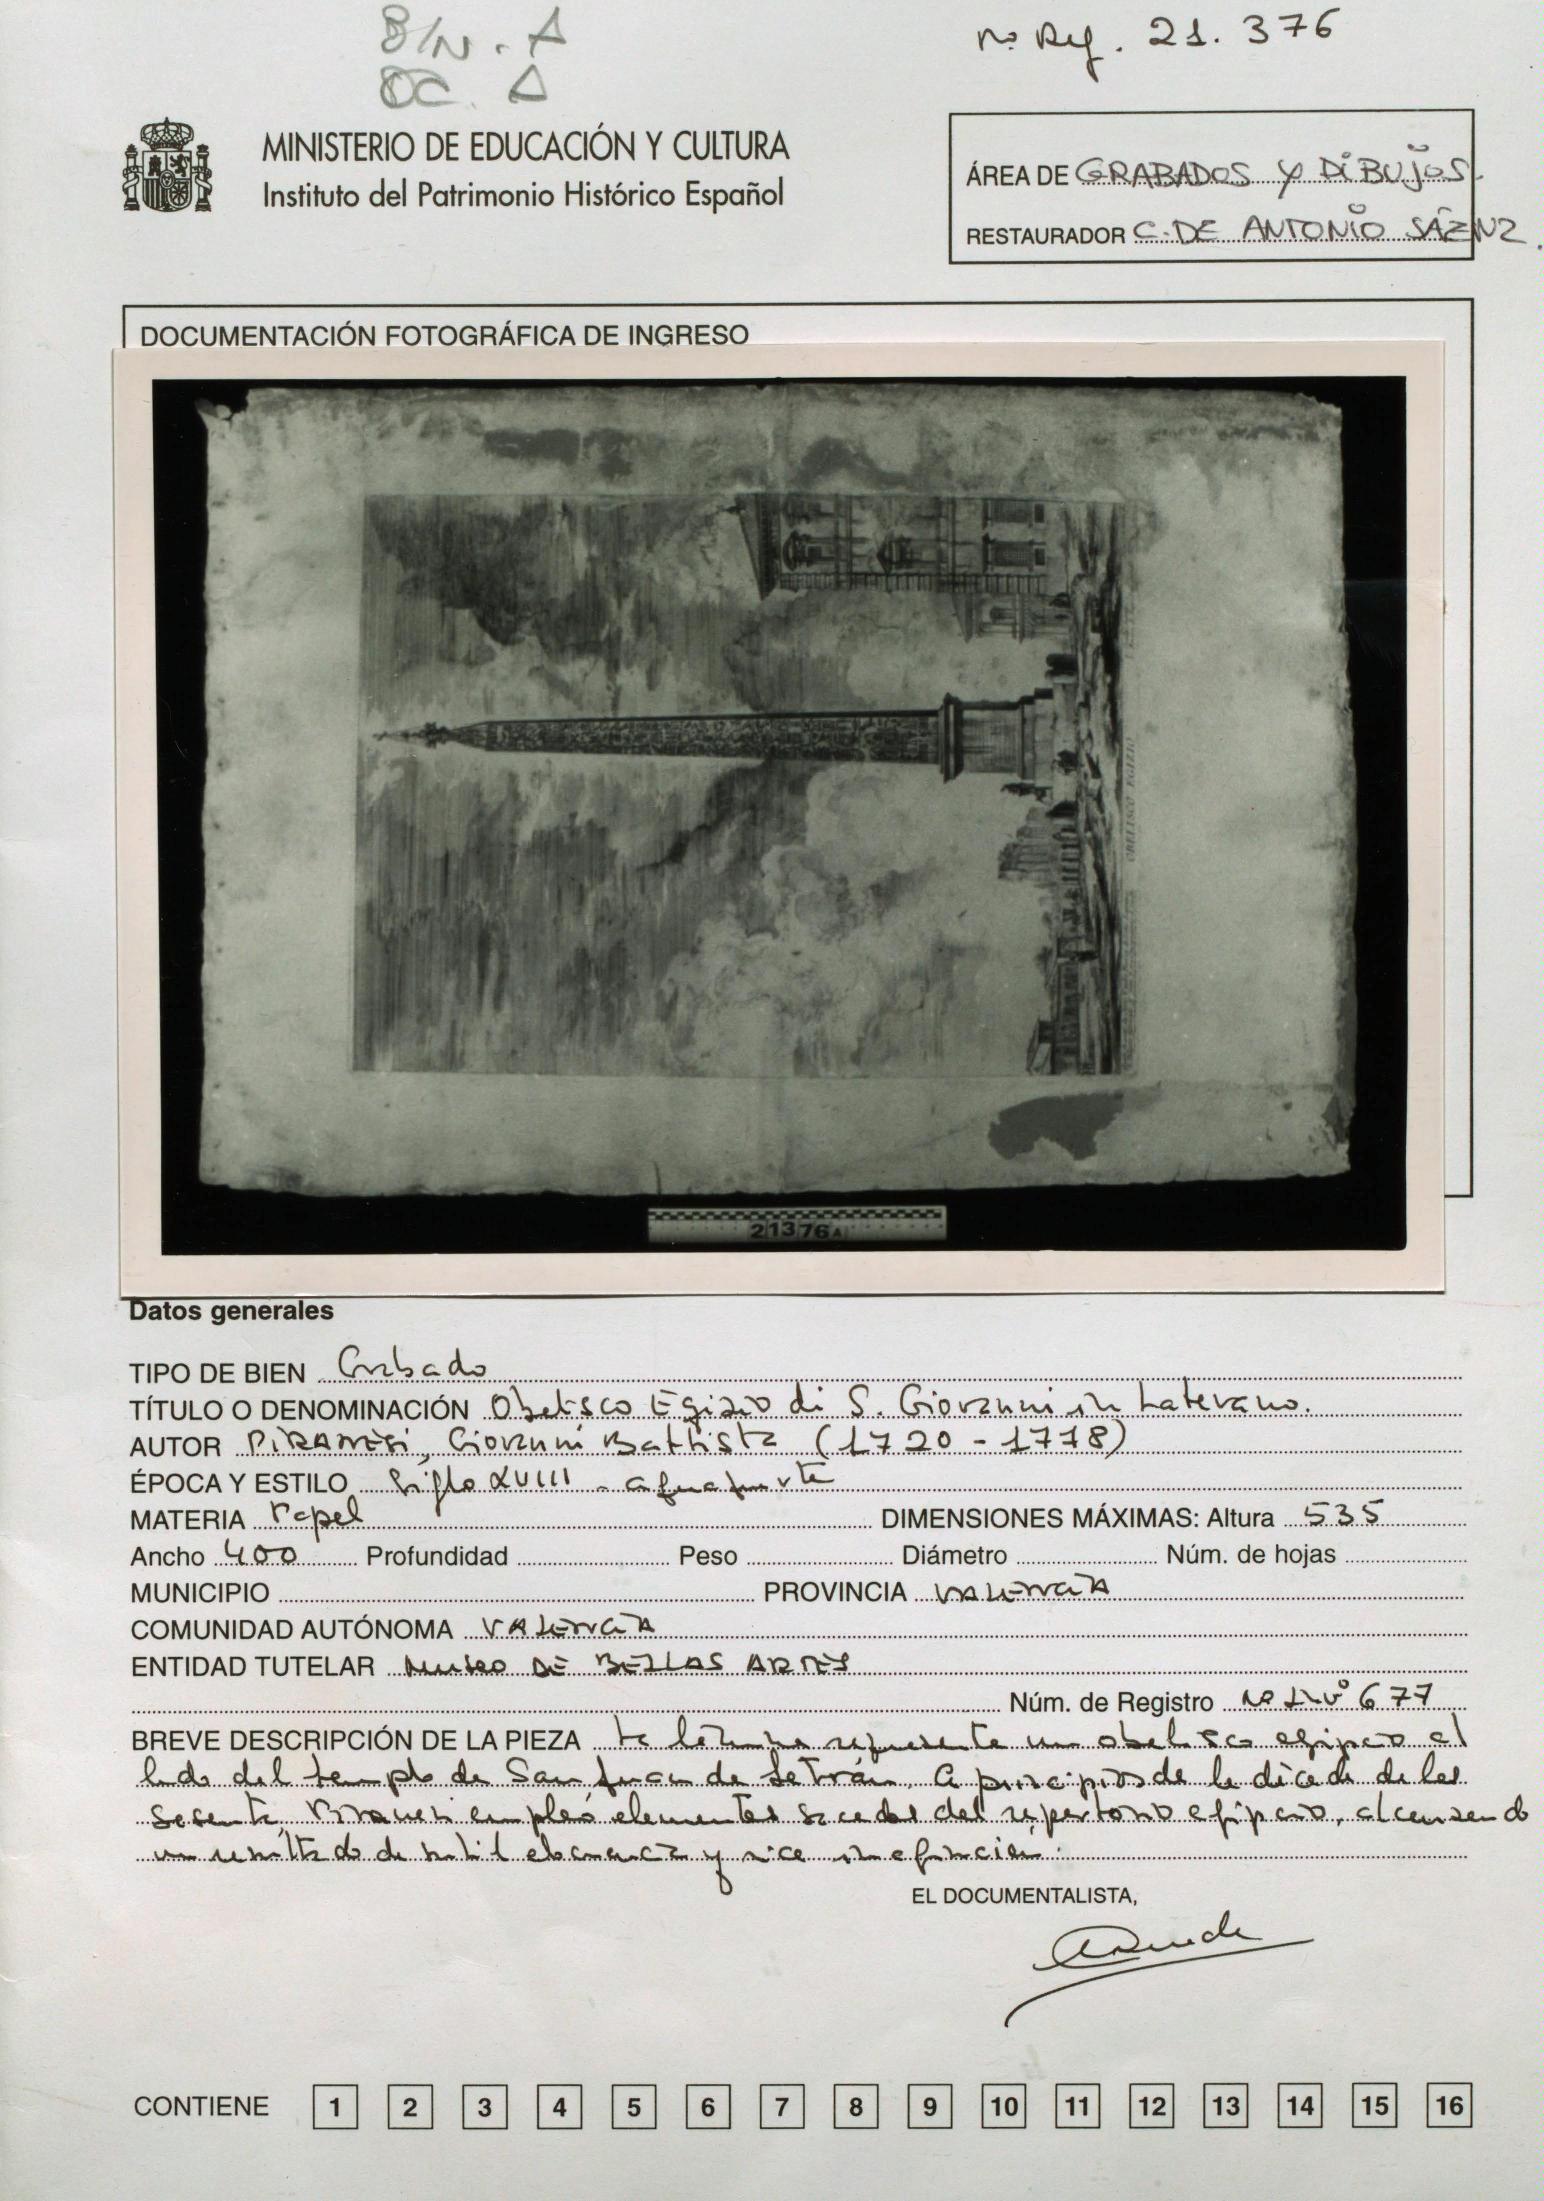 B/N. A
DC. A
nº Reg. 21.376
MINISTERIO DE EDUCACIÓN Y CULTURA
Instituto del Patrimonio Histórico Español
ÁREA DE GRABADOS Y DIBUJOS.
RESTAURADOR C. DE ANTONIO SÁENZ.
DOCUMENTACIÓN FOTOGRÁFICA DE INGRESO
OBELISCO EGIZIO
21376A
Datos generales
TIPO DE BIEN Grabado
TÍTULO O DENOMINACIÓN Obelisco Egizio di S. Giovanni in Laterano.
AUTOR PIRANESI, Giovanni Battista (1720 - 1778)
ÉPOCA Y ESTILO Siglo XVIII - aguafuerte
MATERIA Papel DIMENSIONES MÁXIMAS: Altura 535
Ancho 400 Profundidad Peso Diámetro Núm. de hojas
MUNICIPIO PROVINCIA VALENCIA
COMUNIDAD AUTÓNOMA VALENCIA
ENTIDAD TUTELAR MUSEO DE BELLAS ARTES
Núm. de Registro Nº INVº 677
BREVE DESCRIPCIÓN DE LA PIEZA La lámina representa un obelisco egipcio al
lado del templo de San Juan de Letrán. A principios de la década de los
sesenta, Piranesi empleó elementos sacados del repertorio egipcio, alcanzando
un resultado de sutil elegancia y rica imaginación.
EL DOCUMENTALISTA,
CONTIENE 1 2 3 4 5 6 7 8 9 10 11 12 13 14 15 16